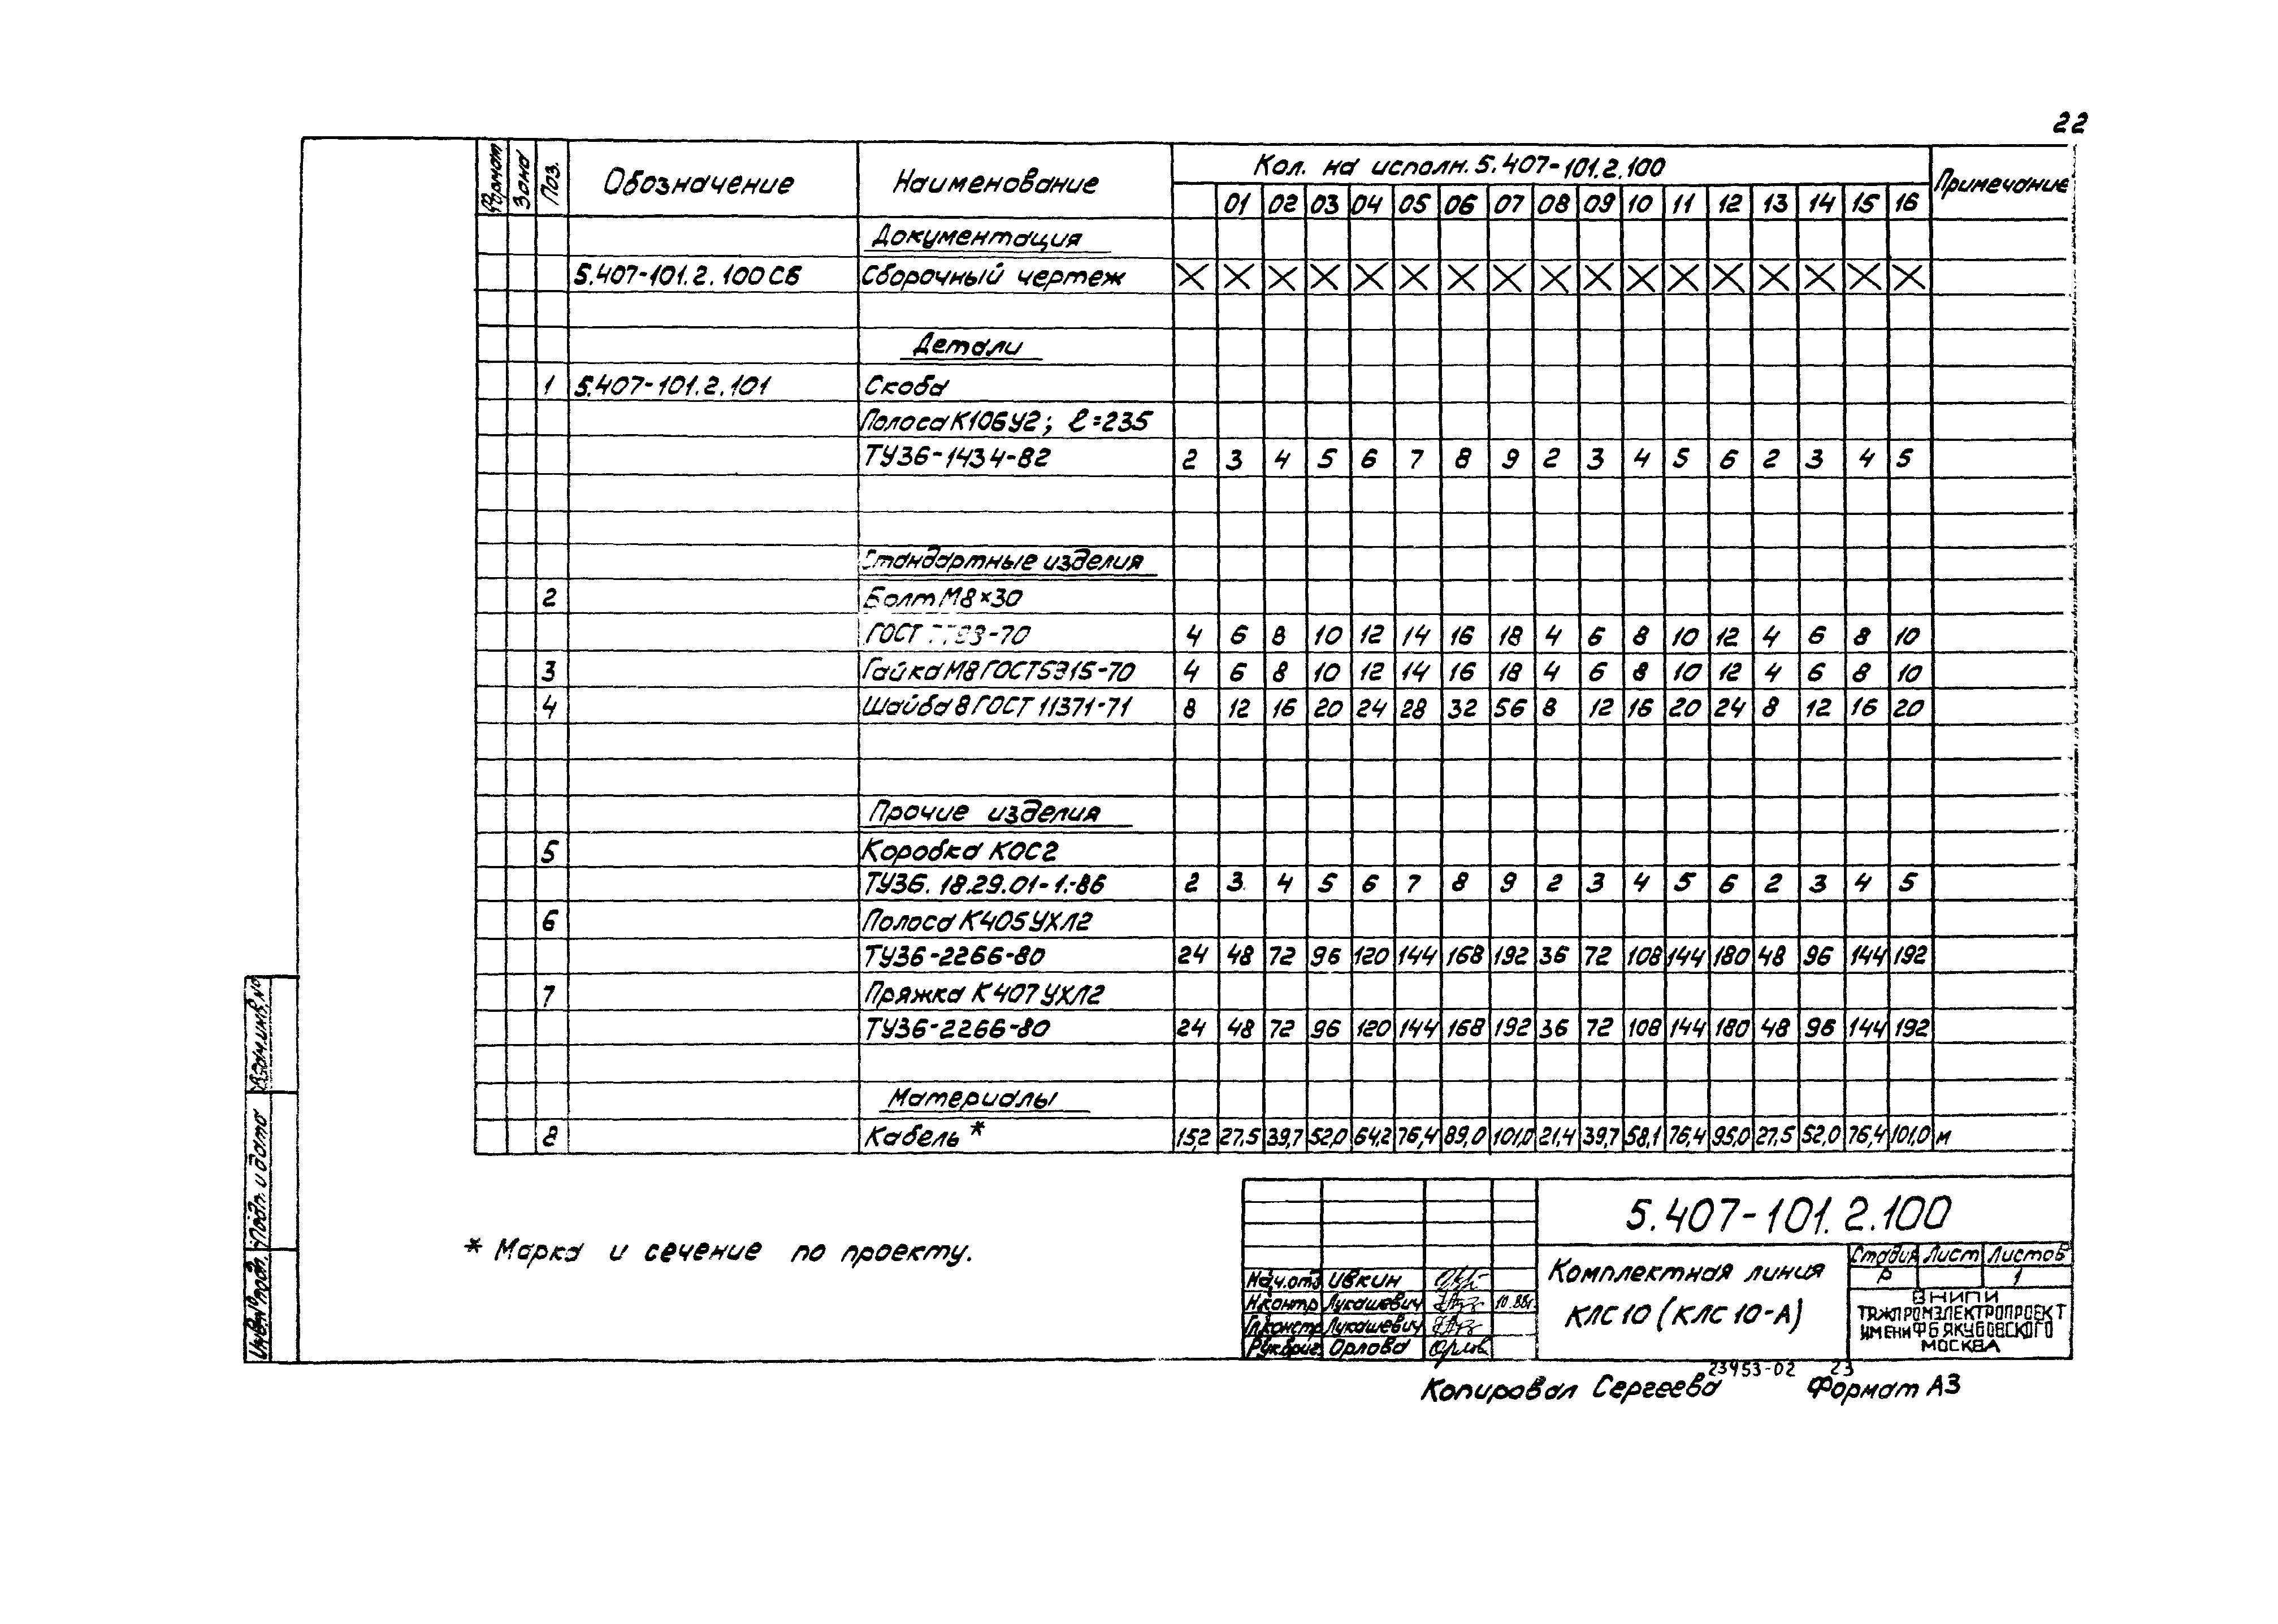 22
Формат Зона Поз. Обозначение Наименование Кол. на исполн. 5.407-101.2.100 Примечание
01 02 03 04 05 06 07 08 09 10 11 12 13 14 15 16
Документация
5.407-101.2.100СБ Сборочный чертеж X X X X X X X X X X X X X X X X X
Детали
1 5.407-101.2.101 Скоба
Полоса К106У2; ℓ=235
ТУ36-1434-82 2 3 4 5 6 7 8 9 2 3 4 5 6 2 3 4 5
Стандартные изделия
2 Болт М8×30
ГОСТ -70 4 6 8 10 12 14 16 18 4 6 8 10 12 4 6 8 10
3 Гайка М8 ГОСТ 5915-70 4 6 8 10 12 14 16 18 4 6 8 10 12 4 6 8 10
4 Шайба 8 ГОСТ 11371-71 8 12 16 20 24 28 32 56 8 12 16 20 24 8 12 16 20
Прочие изделия
5 Коробка КОС2
ТУ36.18.29.01-1.-86 2 3 4 5 6 7 8 9 2 3 4 5 6 2 3 4 5
6 Полоса К405УХЛ2
ТУ36-2266-80 24 48 72 96 120 144 168 192 36 72 108 144 180 48 96 144 192
7 Пряжка К407УХЛ2
ТУ36-2266-80 24 48 72 96 120 144 168 192 36 72 108 144 180 48 96 144 192
Материалы
8 Кабель * 15,2 27,5 39,7 52,0 64,2 76,4 89,0 101,0 21,4 39,7 58,1 76,4 95,0 27,5 52,0 76,4 101,0 м
* Марка и сечение по проекту.
Взам.инв.№
Подп. и дата
Инв.№ подл.
5.407-101.2.100
Комплектная линия
КЛС10 (КЛС 10-А)
Стадия Лист Листов
Р 1
Нач.отд Ивкин
Н.контр Лукашевич 10.88г
Гл.констр Лукашевич
Рук.бриг. Орлова
ВНИПИ
ТЯЖПРОМЭЛЕКТРОПРОЕКТ
ИМЕНИ Ф Б ЯКУБОВСКОГО
МОСКВА
23453-02 23
Копировал Сергеева Формат А3